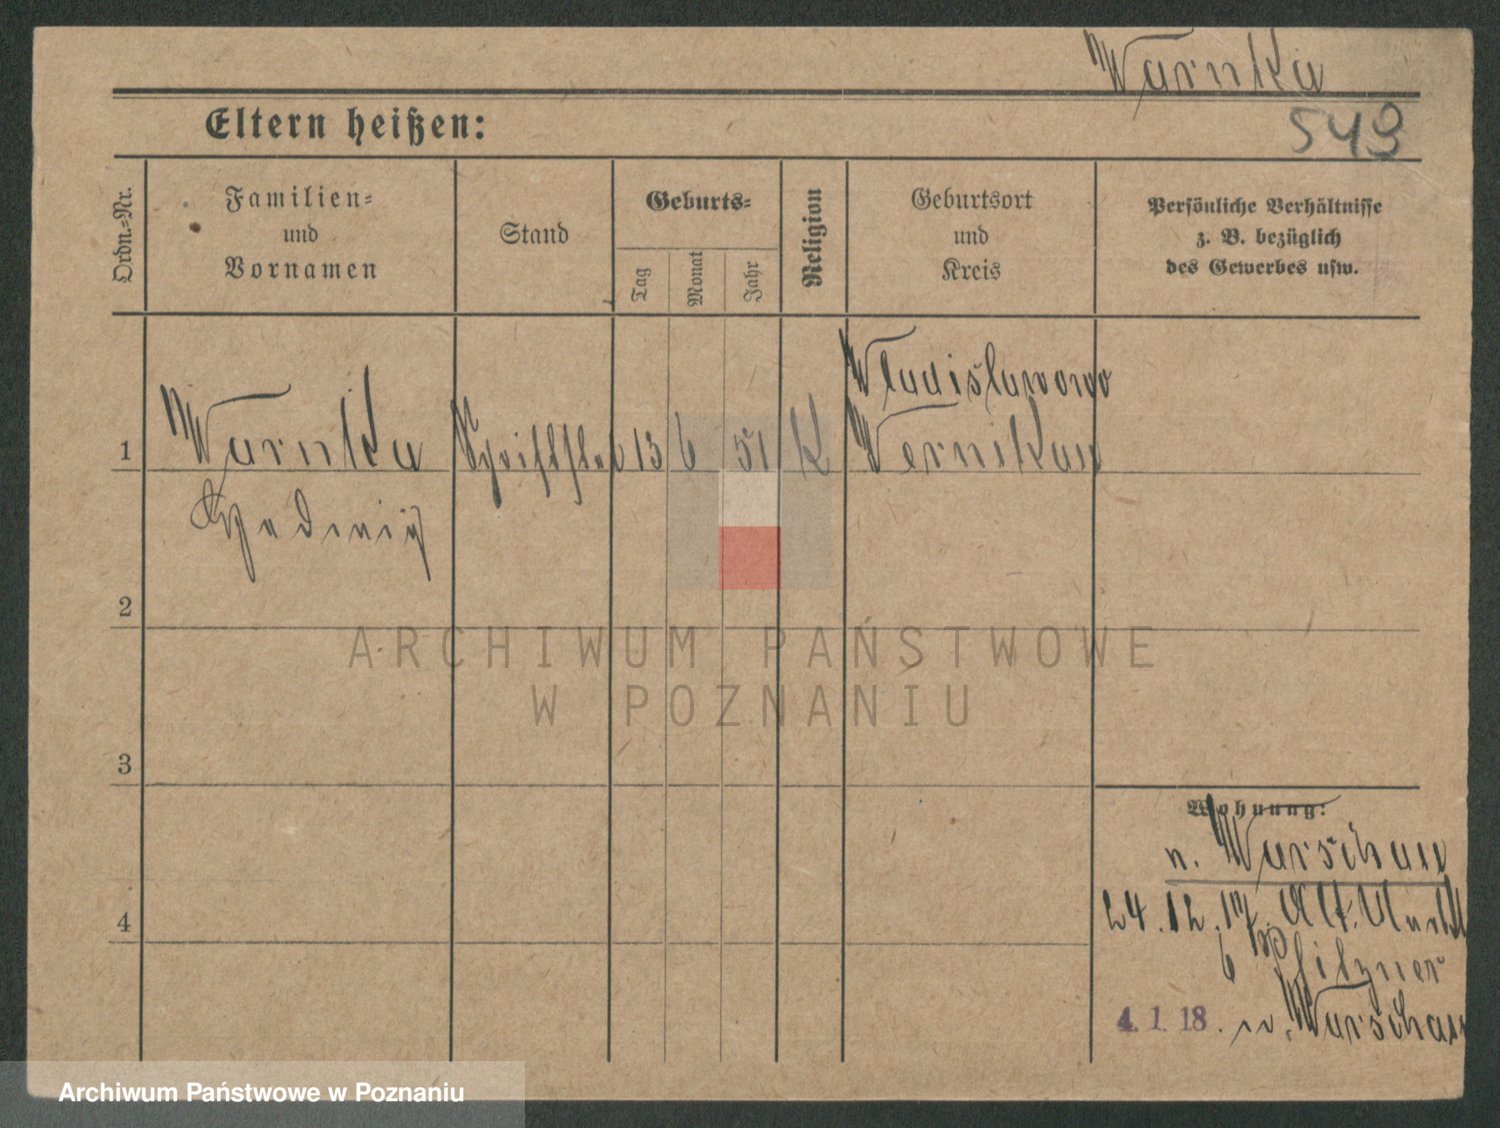 Warnka
549
Eltern heißen:
Ordn.-Nr.
Familien-
und
Vornamen
Stand
Geburts-
Tag
Monat
Jahr
Religion
Geburtsort
und
Kreis
Persönliche Verhältnisse
z. B. bezüglich
des Gewerbes usw.
Wladislawowo
1 Warnka 13 6 51 K Wernikau
Hedwig
2
ARCHIWUM PAŃSTWOWE
W POZNANIU
3
Wohnung:
n. Warschau
24.12.17. Alt. Markt
6 Pfitzner
4
4. 1. 18. n. Warschau
Archiwum Państwowe w Poznaniu